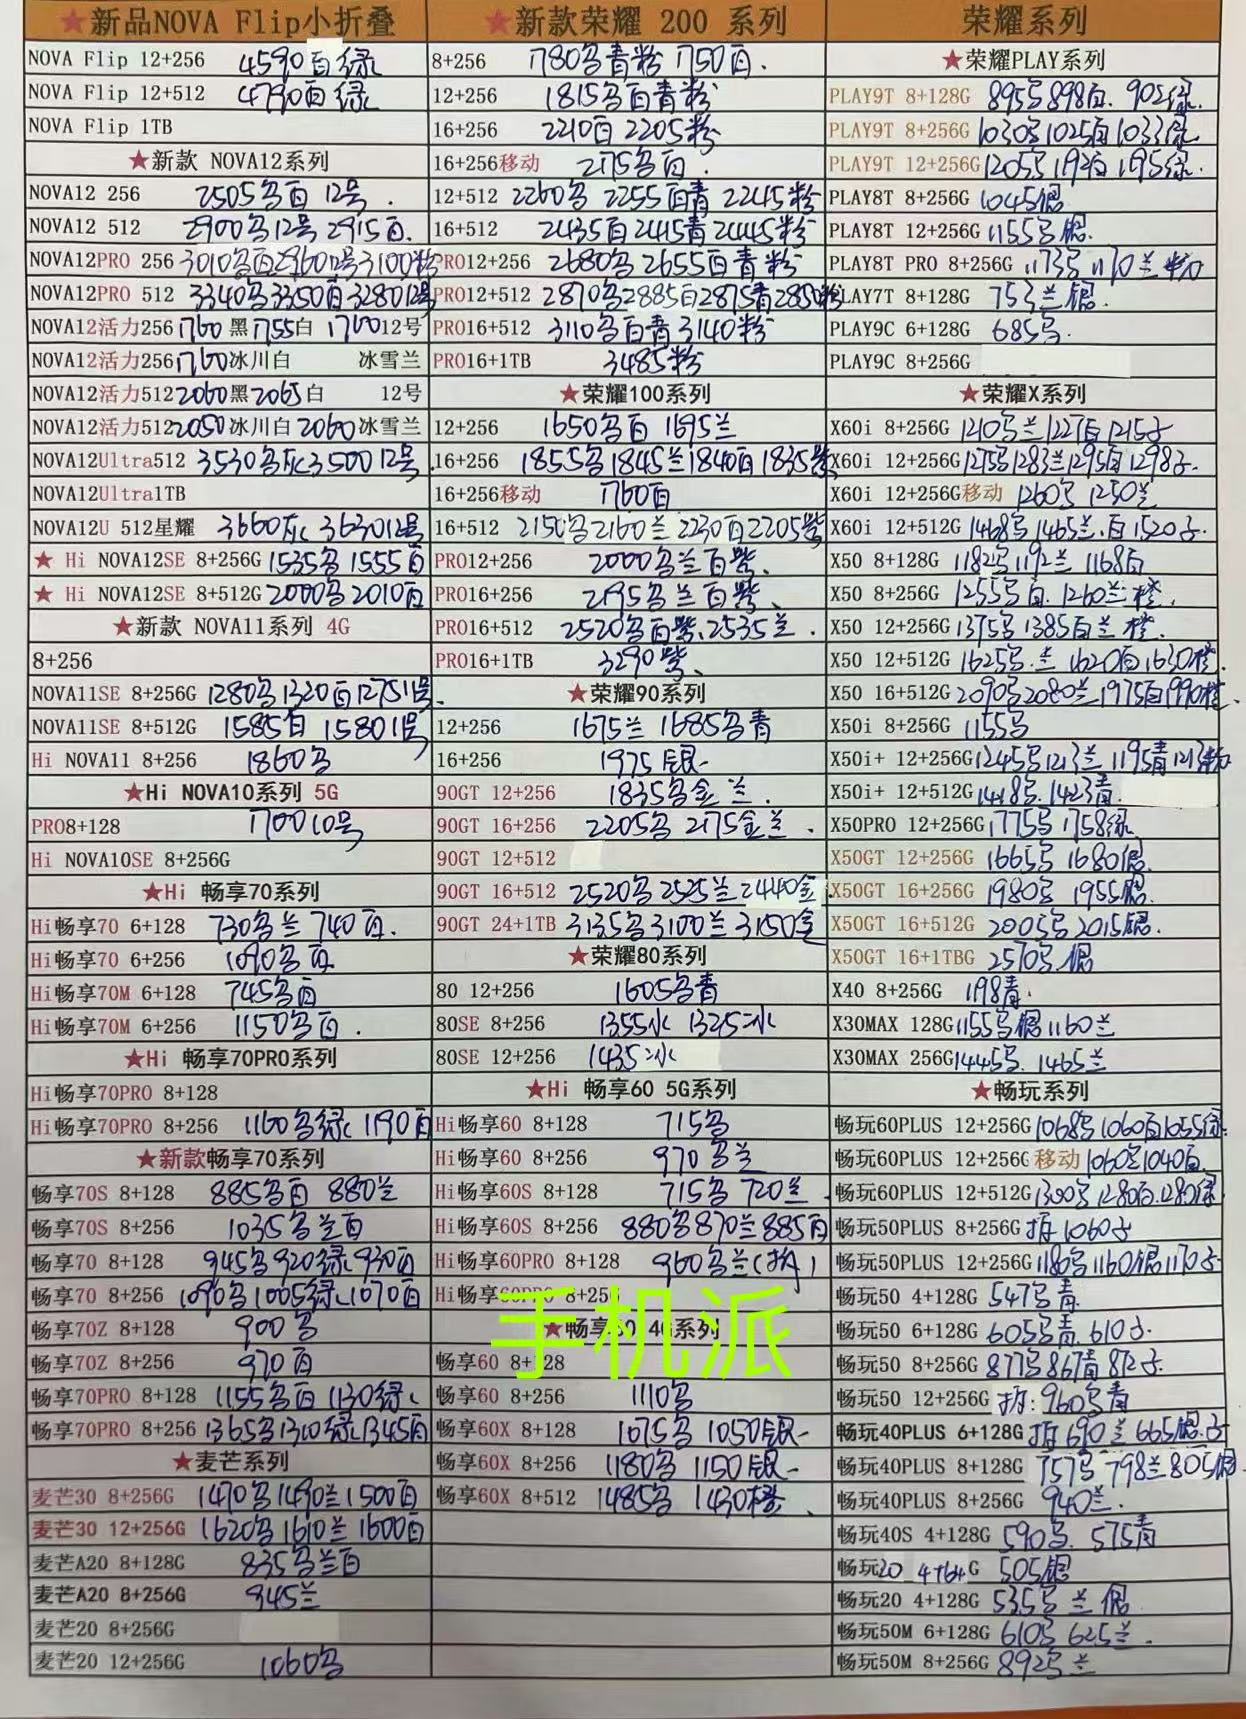 ★新品NOVA Flip小折叠
NOVA Flip 12+256 4590白绿
NOVA Flip 12+512 4790白绿
NOVA Flip 1TB
★新款 NOVA12系列
NOVA12 256 2505黑白 12号.
NOVA12 512 2900黑12号 2915白.
NOVA12PRO 256 3010黑白296012号3100粉
NOVA12PRO 512 3340黑3350白328012号
NOVA12活力256 1760黑 1755白 1760 12号
NOVA12活力256 1760冰川白 冰雪兰
NOVA12活力512 2060黑 2065白 12号
NOVA12活力512 2050冰川白 2060冰雪兰
NOVA12Ultra512 3530黑灰3500 12号
NOVA12Ultra1TB
NOVA12U 512星耀 3660灰 3630 12号
★ Hi NOVA12SE 8+256G 1535黑1555白
★ Hi NOVA12SE 8+512G 2000黑2010白
★新款 NOVA11系列 4G
8+256
NOVA11SE 8+256G 1280黑1320白1275 11号.
NOVA11SE 8+512G 1585白 1580 11号
Hi NOVA11 8+256 1860黑
★Hi NOVA10系列 5G
PRO8+128 1700 10号
Hi NOVA10SE 8+256G
★Hi 畅享70系列
Hi畅享70 6+128 730黑兰 740白.
Hi畅享70 6+256 1090黑白
Hi畅享70M 6+128 745黑白
Hi畅享70M 6+256 1150黑白.
★Hi 畅享70PRO系列
Hi畅享70PRO 8+128
Hi畅享70PRO 8+256 1160黑绿 1190白
★新款畅享70系列
畅享70S 8+128 885黑白 880兰
畅享70S 8+256 1035黑兰白
畅享70 8+128 945黑920绿930白
畅享70 8+256 1090黑1005绿1070白
畅享70Z 8+128 900黑
畅享70Z 8+256 970白
畅享70PRO 8+128 1155黑白 1130绿
畅享70PRO 8+256 1365黑1310绿1345白
★麦芒系列
麦芒30 8+256G 1470黑1490兰1500白
麦芒30 12+256G 1620黑1610兰1600白
麦芒A20 8+128G 835黑兰白
麦芒A20 8+256G 945兰
麦芒20 8+256G
麦芒20 12+256G 1060黑
★新款荣耀 200 系列
8+256 1780黑青粉 1750白.
12+256 1815黑白青粉
16+256 2210白 2205粉
16+256移动 2175黑白.
12+512 2260黑 2255白青 2245粉
16+512 2435白2415青2445粉
PRO12+256 2680黑 2655白青 粉
PRO12+512 2870黑2885白2875青2850粉
PRO16+512 3110黑白青3140粉
PRO16+1TB 3485粉
★荣耀100系列
12+256 1650黑白 1695兰
16+256 1855黑1845兰1840白1835紫
16+256移动 1760白
16+512 2150黑2160兰 2230白2205紫
PRO12+256 2000黑兰白紫.
PRO16+256 2195黑兰白紫、
PRO16+512 2520黑白紫、2535兰.
PRO16+1TB 3290紫、
★荣耀90系列
12+256 1675兰 1685黑青
16+256 1975银
90GT 12+256 1835黑金兰.
90GT 16+256 2205黑 2175金兰.
90GT 12+512
90GT 16+512 2520黑2525兰2440金
90GT 24+1TB 3135黑3100兰3150金
★荣耀80系列
80 12+256 1605黑青
80SE 8+256 1355冰 1325冰
80SE 12+256 1435冰
★Hi 畅享60 5G系列
Hi畅享60 8+128 715黑
Hi畅享60 8+256 970黑兰
Hi畅享60S 8+128 715黑 720兰
Hi畅享60S 8+256 880黑870兰885白
Hi畅享60PRO 8+128 960黑兰(拆)
Hi畅享60PRO 8+256
手机派
★畅享60 4G系列
畅享60 8+128
畅享60 8+256 1110黑
畅享60X 8+128 1075黑 1050银
畅享60X 8+256 1180黑 1150银
畅享60X 8+512 1485黑 1430橙、
荣耀系列
★荣耀PLAY系列
PLAY9T 8+128G 895黑898白.902绿.
PLAY9T 8+256G 1030黑1025白1033绿
PLAY9T 12+256G 1205黑1192白1195绿.
PLAY8T 8+256G 1045银
PLAY8T 12+256G 1155黑银.
PLAY8T PRO 8+256G 1173黑1170兰粉
PLAY7T 8+128G 753兰银.
PLAY9C 6+128G 685黑.
PLAY9C 8+256G
★荣耀X系列
X60i 8+256G 1210黑兰1227白1215紫
X60i 12+256G 1275黑1283兰1295白1298紫.
X60i 12+256G移动 1260黑1250兰
X60i 12+512G 1468黑1465兰.白1520紫.
X50 8+128G 1182黑1192兰 1168白
X50 8+256G 1255黑白.1260兰橙.
X50 12+256G 1375黑1385白兰 橙.
X50 12+512G 1625黑.兰 1620白1630橙.
X50 16+512G 2090黑2080兰1975白1990橙.
X50i 8+256G 1155黑
X50i+ 12+256G 1245黑1213兰 1195青1213粉
X50i+ 12+512G 1418黑.1423青.
X50PRO 12+256G 1775黑 1758绿.
X50GT 12+256G 1665黑 1680银.
X50GT 16+256G 1980黑 1955银.
X50GT 16+512G 2005黑2015银.
X50GT 16+1TBG 2570黑.银
X40 8+256G 1198青.
X30MAX 128G 1155黑银1160兰
X30MAX 256G 1445黑.1465兰
★畅玩系列
畅玩60PLUS 12+256G 1068黑1060白1055绿.
畅玩60PLUS 12+256G 移动 1060黑1040白.
畅玩60PLUS 12+512G 1300黑1280白.1280绿
畅玩50PLUS 8+256G 拆1060紫
畅玩50PLUS 12+256G 1180黑1160银1170紫
畅玩50 4+128G 547黑青.
畅玩50 6+128G 605黑青.610紫.
畅玩50 8+256G 877黑867青872紫.
畅玩50 12+256G 拆:960黑青
畅玩40PLUS 6+128G 拆690兰 665银.紫
畅玩40PLUS 8+128G 757黑798兰805银
畅玩40PLUS 8+256G 940兰.
畅玩40S 4+128G 590黑.575青
畅玩20 4+64G 505银
畅玩20 4+128G 535黑 兰 银.
畅玩50M 6+128G 610黑625兰.
畅玩50M 8+256G 892黑兰